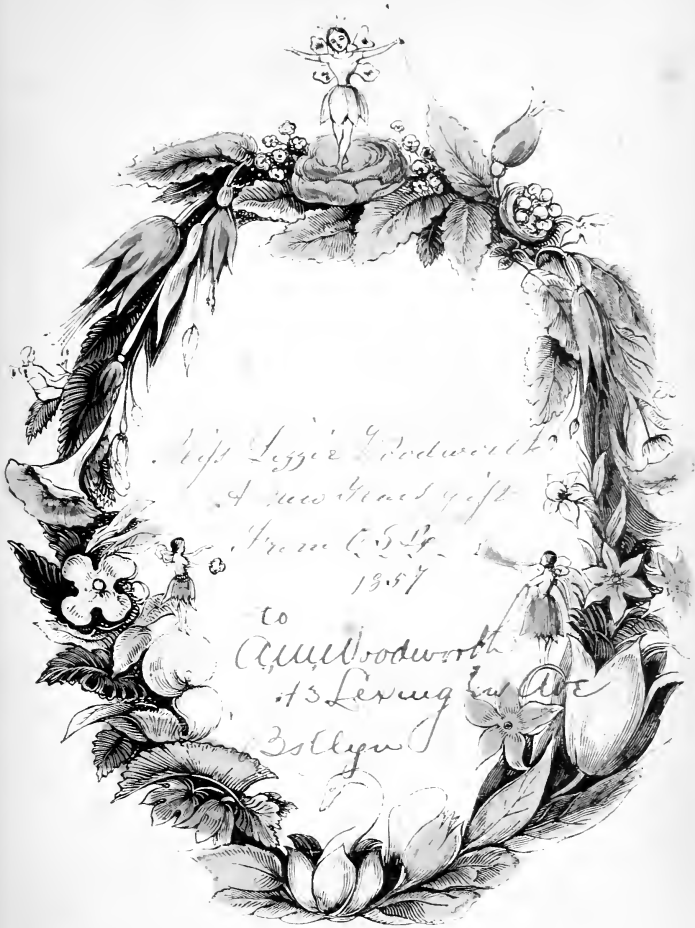 Miss Lizzie Woodworth
A new Years gift
From C. S.
1857
to
A.M. Woodworth
43 Lexington Ave
Bklyn